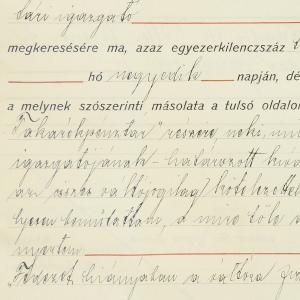 tári igazgató
megkeresésére ma, azaz egyezerkilenczszáz
hó negyedik napján, dé
a melynek szószerinti másolata a tulsó oldalon
Takarékpénztár" részére, neki, mi
igazgatójának határozott kívá
az váltójogilag kötelezettel
bemutattam, a mire tőle
nyertem
"Fedezet hiányában a váltóra